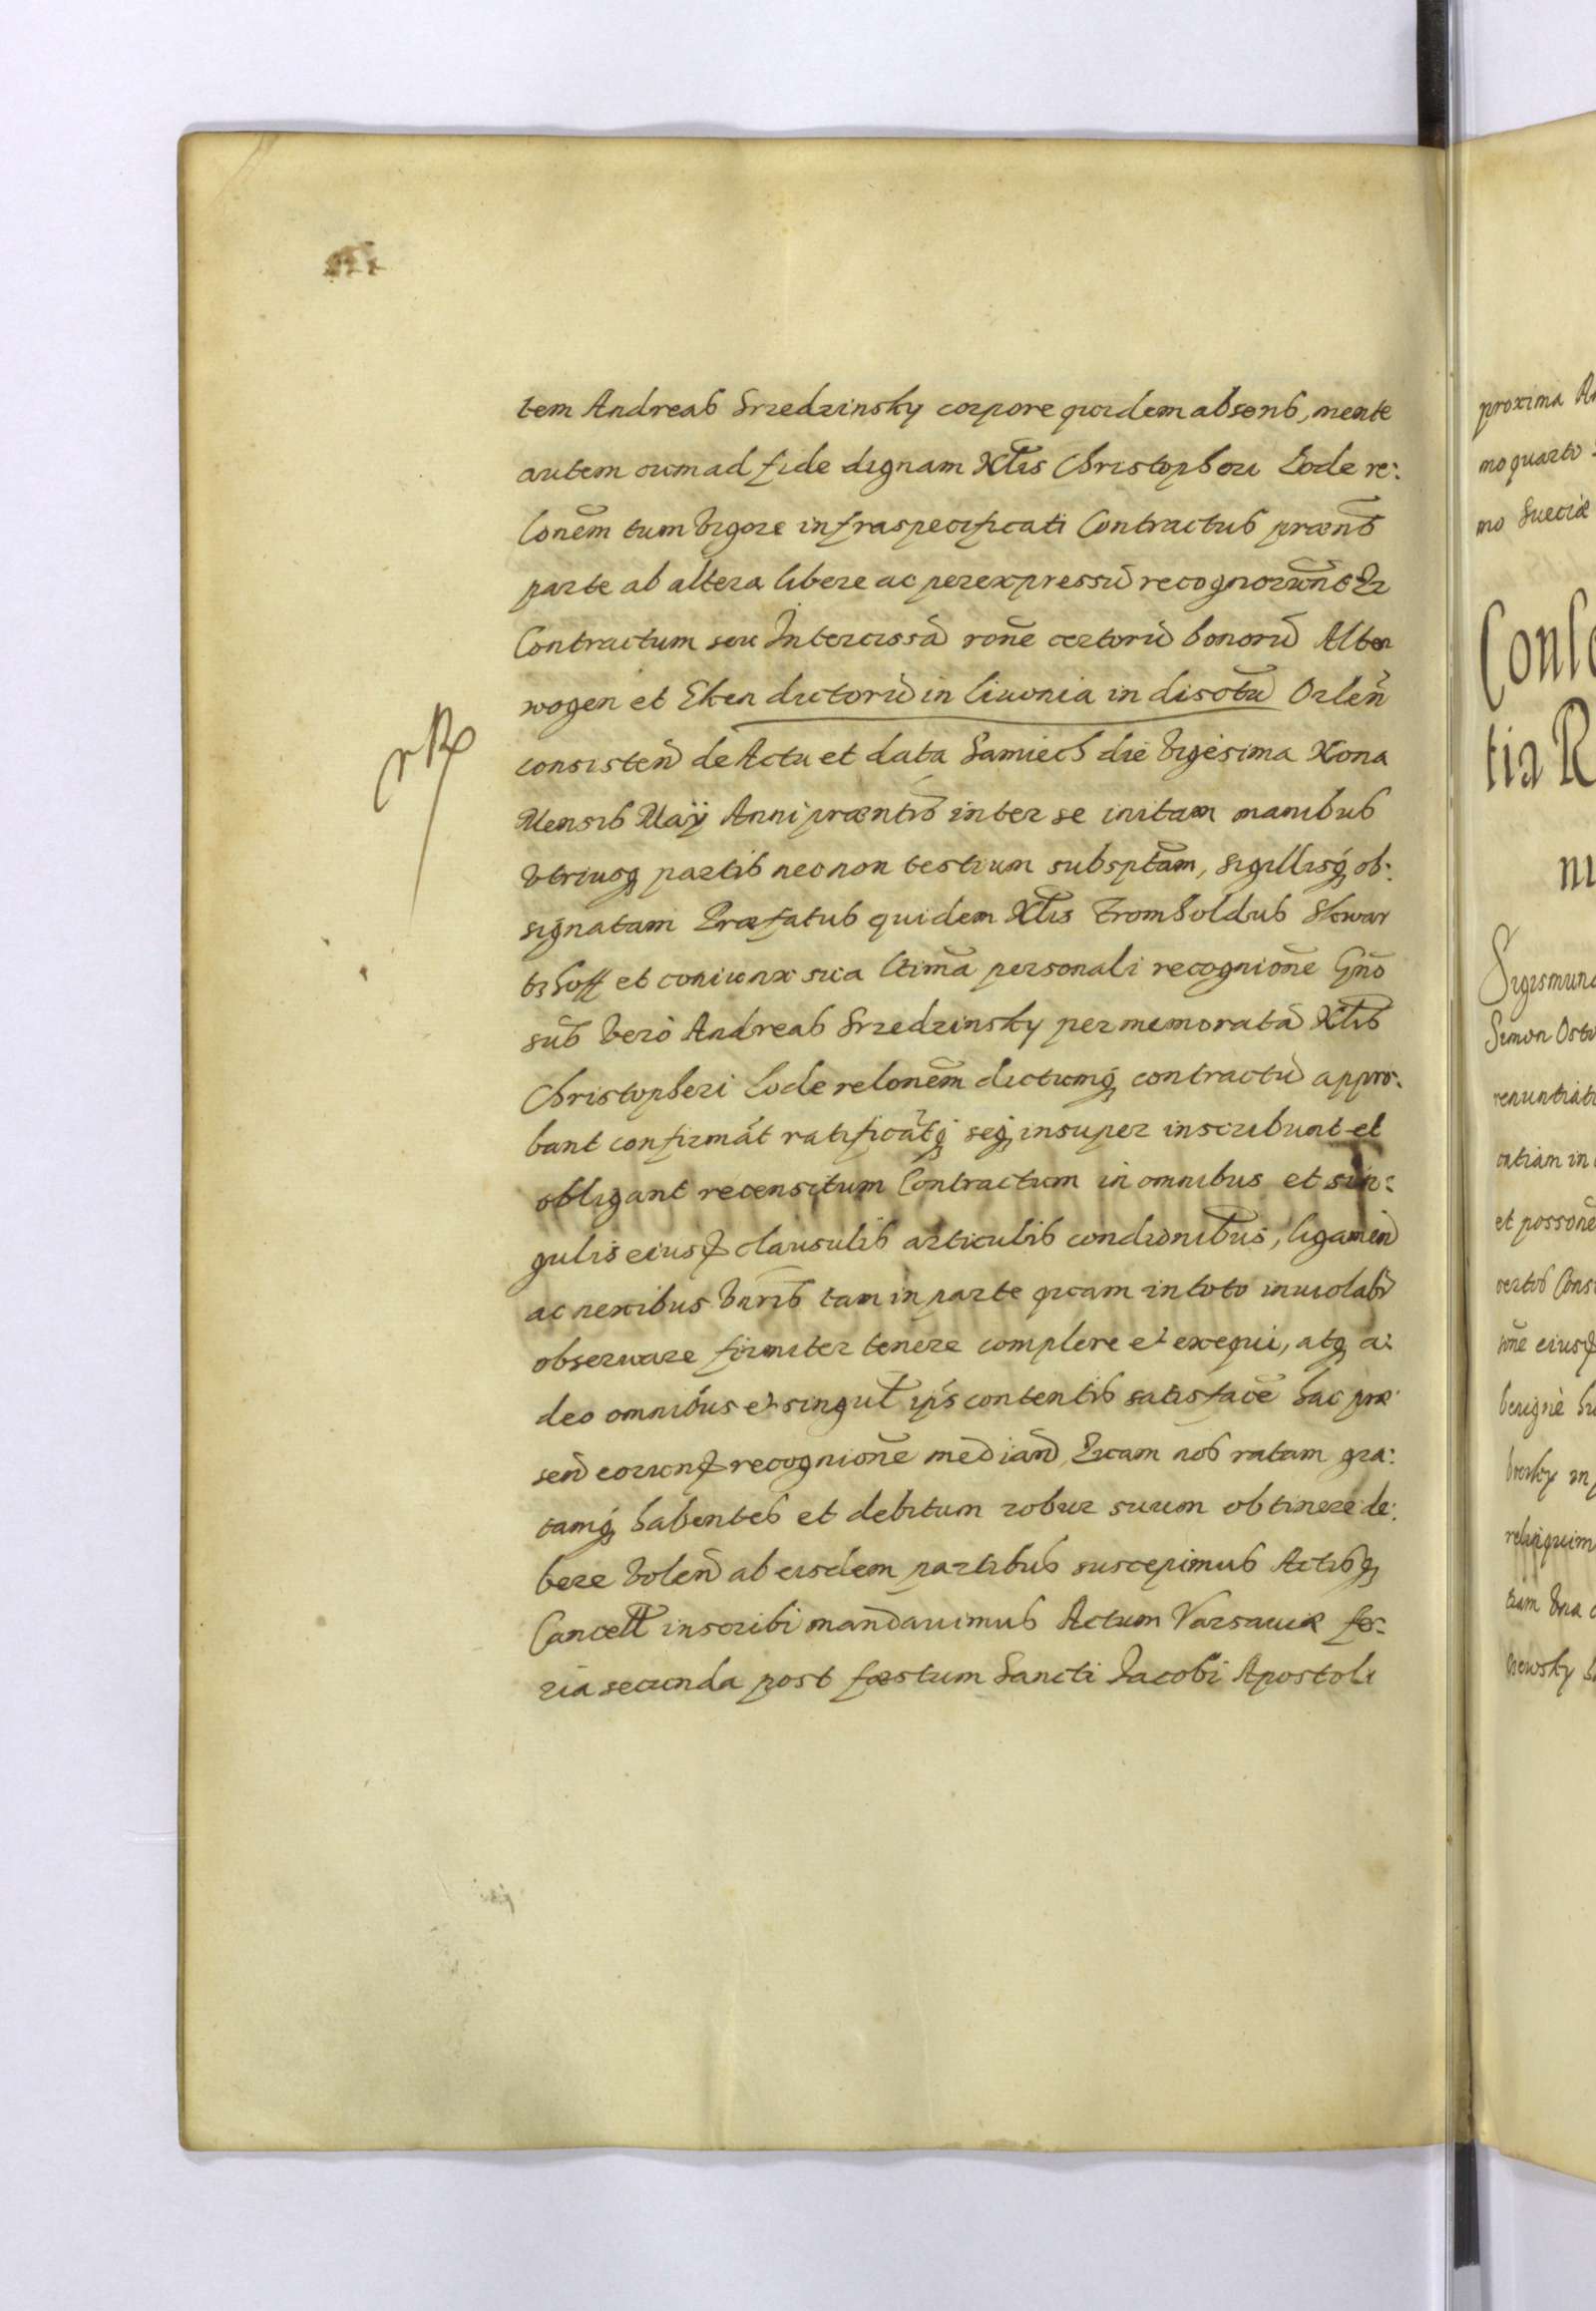 tem Andreas Srzedzinsky corpore quidem absens, mente
autem cum ad fide dignam Nlis Christophori Lode re:
lonem tum vigore infraspecificati Contractus praens
parte ab altera libere ac per expressū recognoverūnt Qr
Contractum seu Intercissā rone certorū bonorū Alten
wogen et Eken dictorū in Livonia in disctu Orlen
consisten de Actu et data Samiech die vigesima Nona
Mensis Maÿ Anni praentis inter se initam manibus
utriusq partis necnon testium subsptam, sigillisq ob:
signatam Praefatus quidem Nlis Fromholdus Skwar
tzhoff et coniunx sua ltima personali recognione Gno
sus vero Andreas Srzedzinsky per memoratā Nlis
Christopheri Lode relonem dictumq contractū appro:
bant confirmāt ratificātq seq insuper inscribunt et
obligant recensitum Contractum in omnibus et sin:
gulis eiusq clausulis articulis condionibus, ligamen
ac nexibus unris tam in parte quam in toto inviolabr
observare firmiter tenere complere et exequi, atq a:
deo omnibus et singul ips contentis satisface hac prae
sen eorunq recognione median Quam nos ratam gra:
tamq habentes et debitum robur suum obtinere de:
bere volen ab eisdem partibus suscepimus Actisq
Cancell inscribi mandavimus Actum Varsaviae fe:
ria secunda post faestum Sancti Jacobi Apostoli
proxima
mo quarto
mo Sueciae
Cons
tia R
ni
Sigismund
Simon Ost
renuntiat
catiam in
et possone
certos Cons
one eiusq
benigne
reliquim
tram una